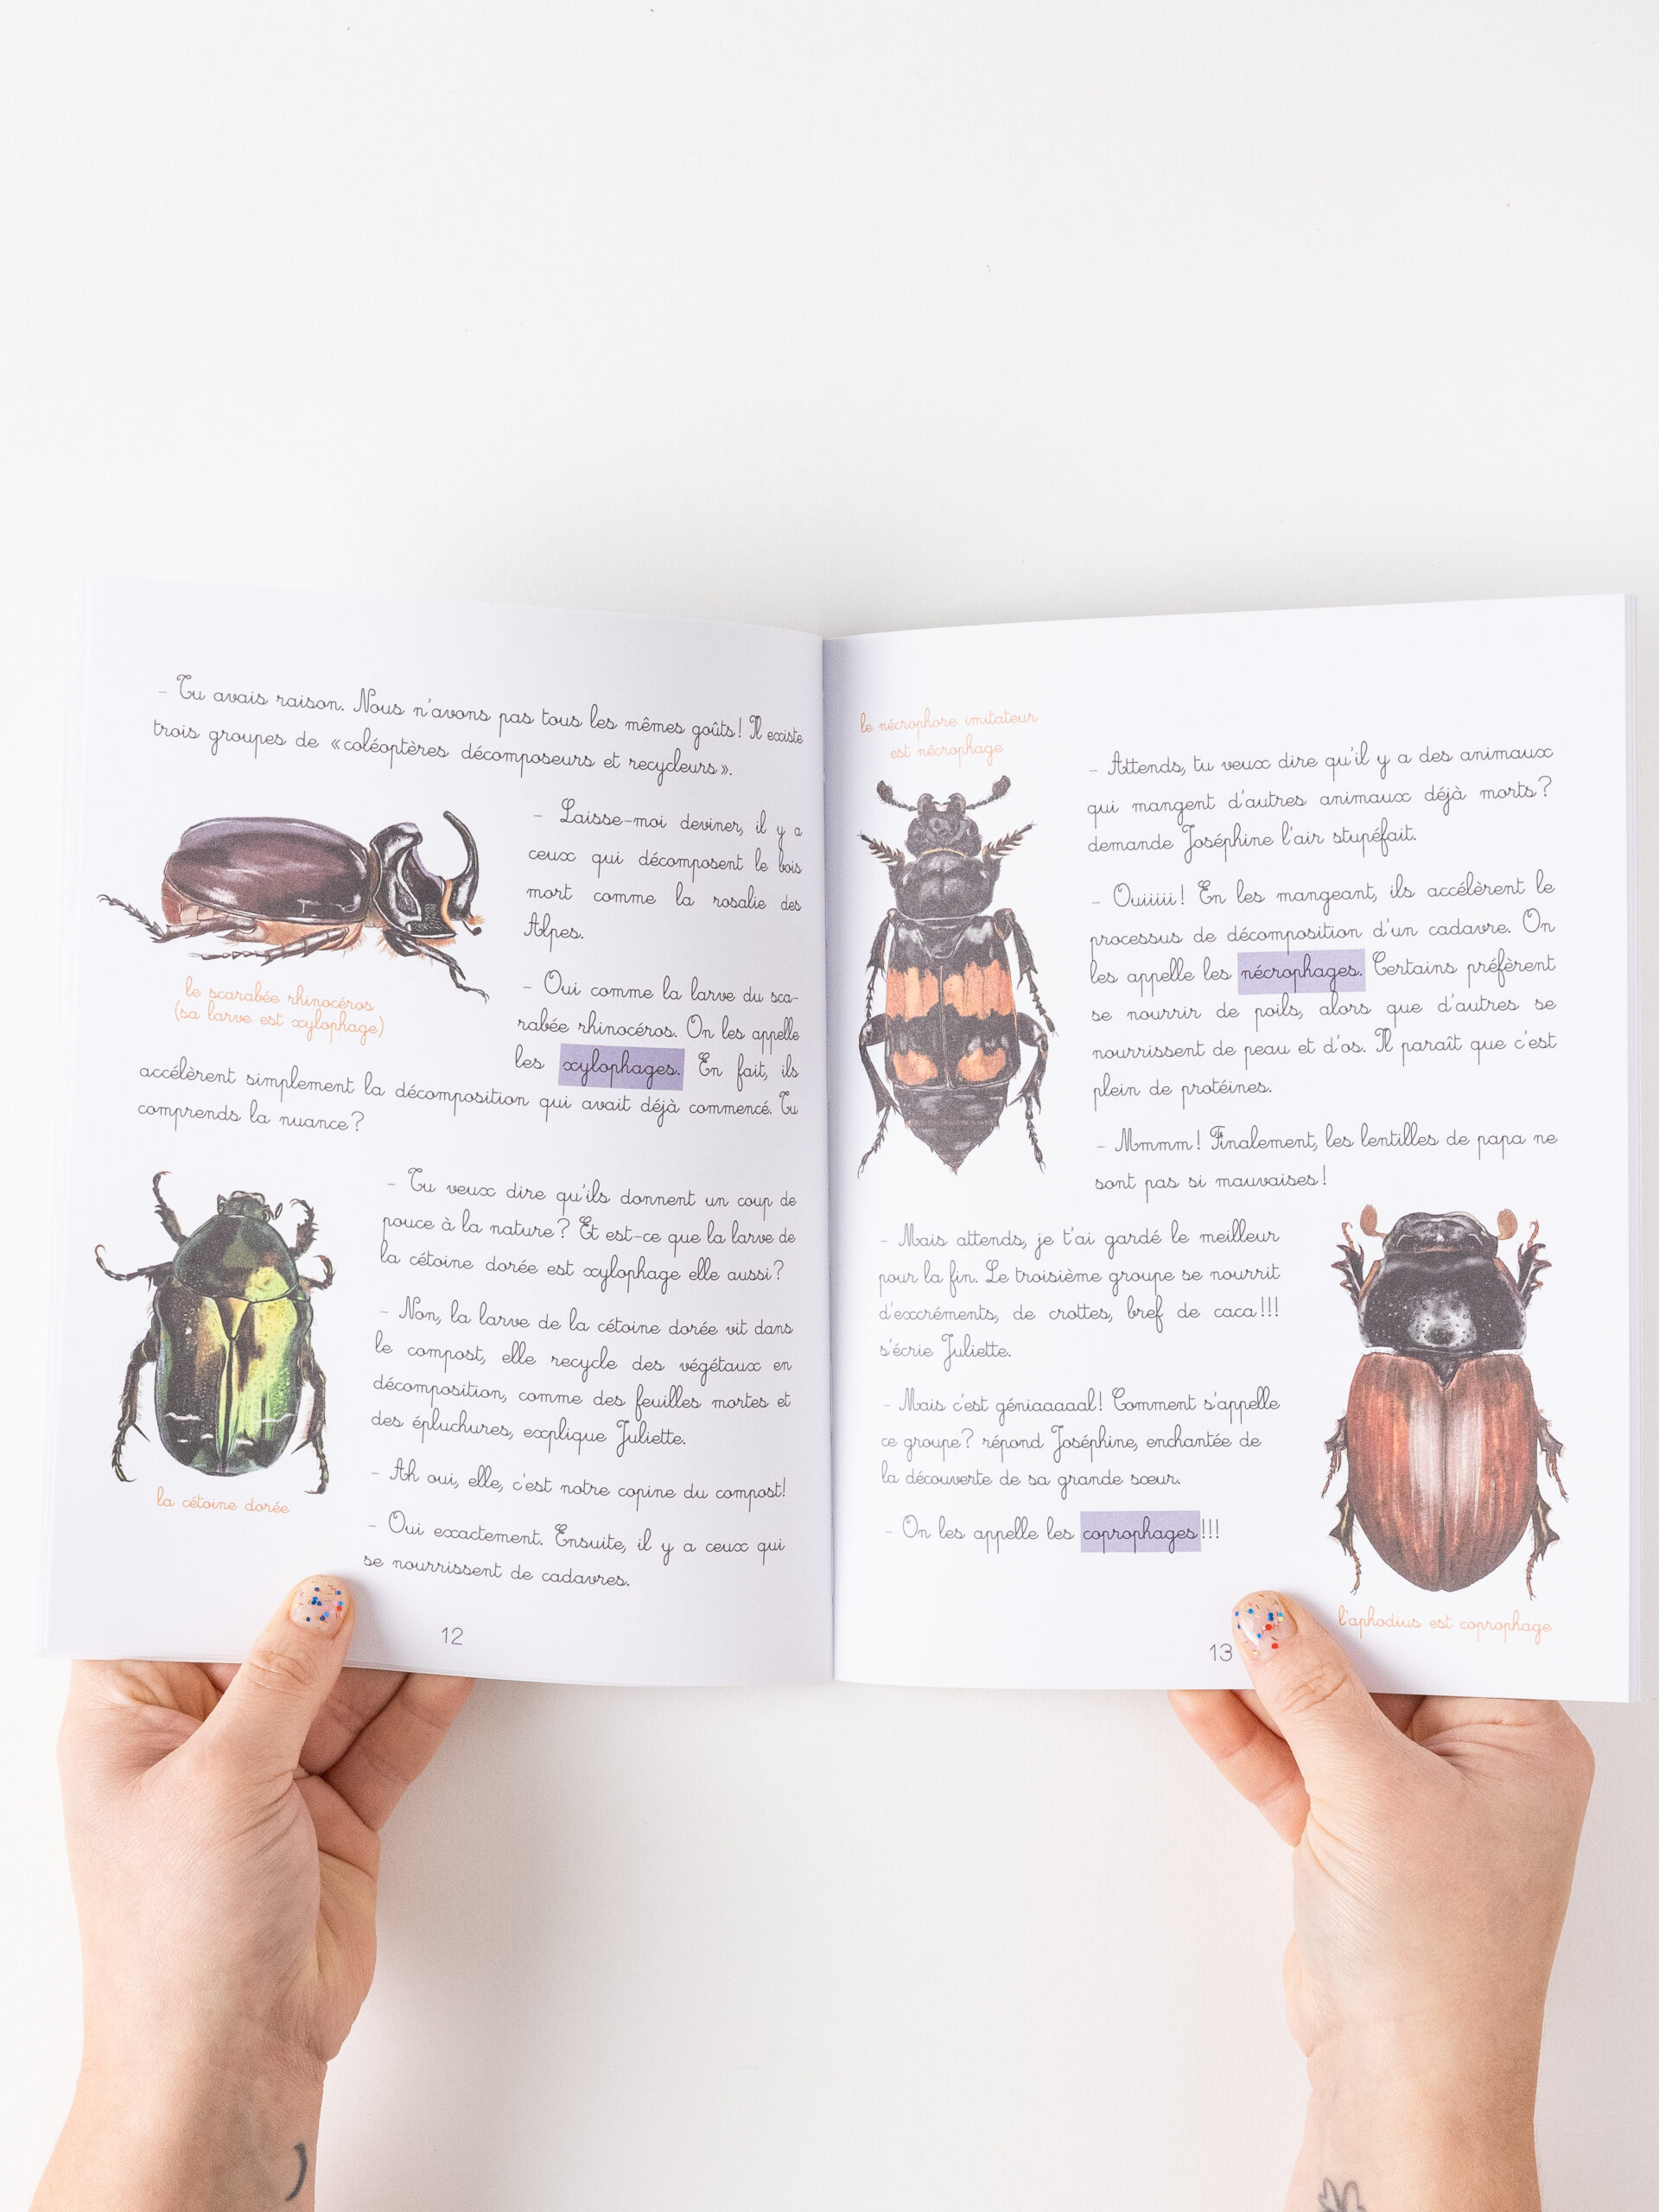 – Tu avais raison. Nous n'avons pas tous les mêmes goûts! Il existe
trois groupes de «coléoptères décomposeurs et recycleurs».
– Laisse-moi deviner, il y a
ceux qui décomposent le bois
mort comme la rosalie des
Alpes.
– Oui comme la larve du sca-
rabée rhinocéros. On les appelle
les xylophages. En fait, ils
accélèrent simplement la décomposition qui avait déjà commencé. Tu
comprends la nuance?
le scarabée rhinocéros
(sa larve est xylophage)
– Tu veux dire qu'ils donnent un coup de
pouce à la nature? Et est-ce que la larve de
la cétoine dorée est xylophage elle aussi?
– Non, la larve de la cétoine dorée vit dans
le compost, elle recycle des végétaux en
décomposition, comme des feuilles mortes et
des épluchures, explique Juliette.
– Ah oui, elle, c'est notre copine du compost!
– Oui exactement. Ensuite, il y a ceux qui
se nourrissent de cadavres.
la cétoine dorée
12
le nécrophore imitateur
est nécrophage
– Attends, tu veux dire qu'il y a des animaux
qui mangent d'autres animaux déjà morts?
demande Joséphine l'air stupéfait.
– Ouiiiii! En les mangeant, ils accélèrent le
processus de décomposition d'un cadavre. On
les appelle les nécrophages. Certains préfèrent
se nourrir de poils, alors que d'autres se
nourrissent de peau et d'os. Il paraît que c'est
plein de protéines.
– Mmmm! Finalement, les lentilles de papa ne
sont pas si mauvaises!
– Mais attends, je t'ai gardé le meilleur
pour la fin. Le troisième groupe se nourrit
d'excréments, de crottes, bref de caca!!!
s'écrie Juliette.
– Mais c'est géniaaaaal! Comment s'appelle
ce groupe? répond Joséphine, enchantée de
la découverte de sa grande sœur.
– On les appelle les coprophages!!!
l'aphodius est coprophage
13